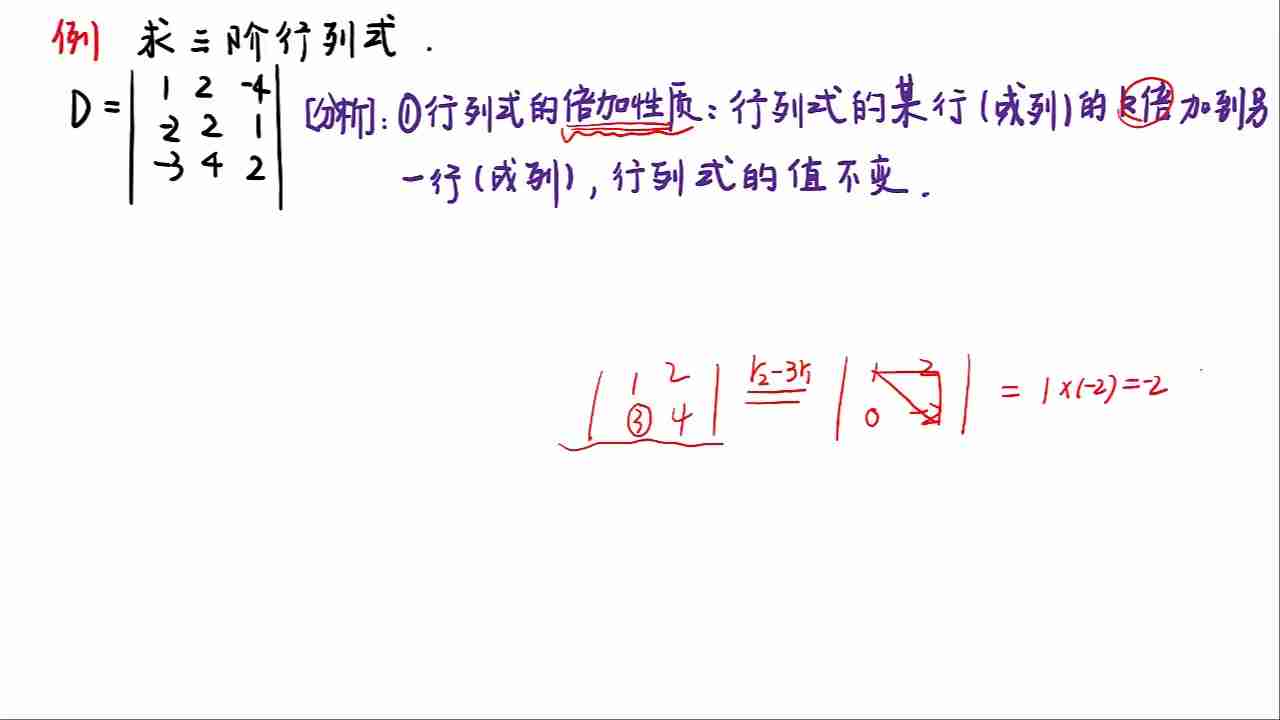 例 求三阶行列式.
D = | 1 2 -4 |
| -2 2 1 |
| -3 4 2 |
[分析]: ①行列式的倍加性质: 行列式的某行(或列)的k倍加到另
一行(或列), 行列式的值不变.
| 1 2 | r₂-3r₁ | 1 2 | = 1×(-2)=-2
| ③ 4 | | 0 -2 |